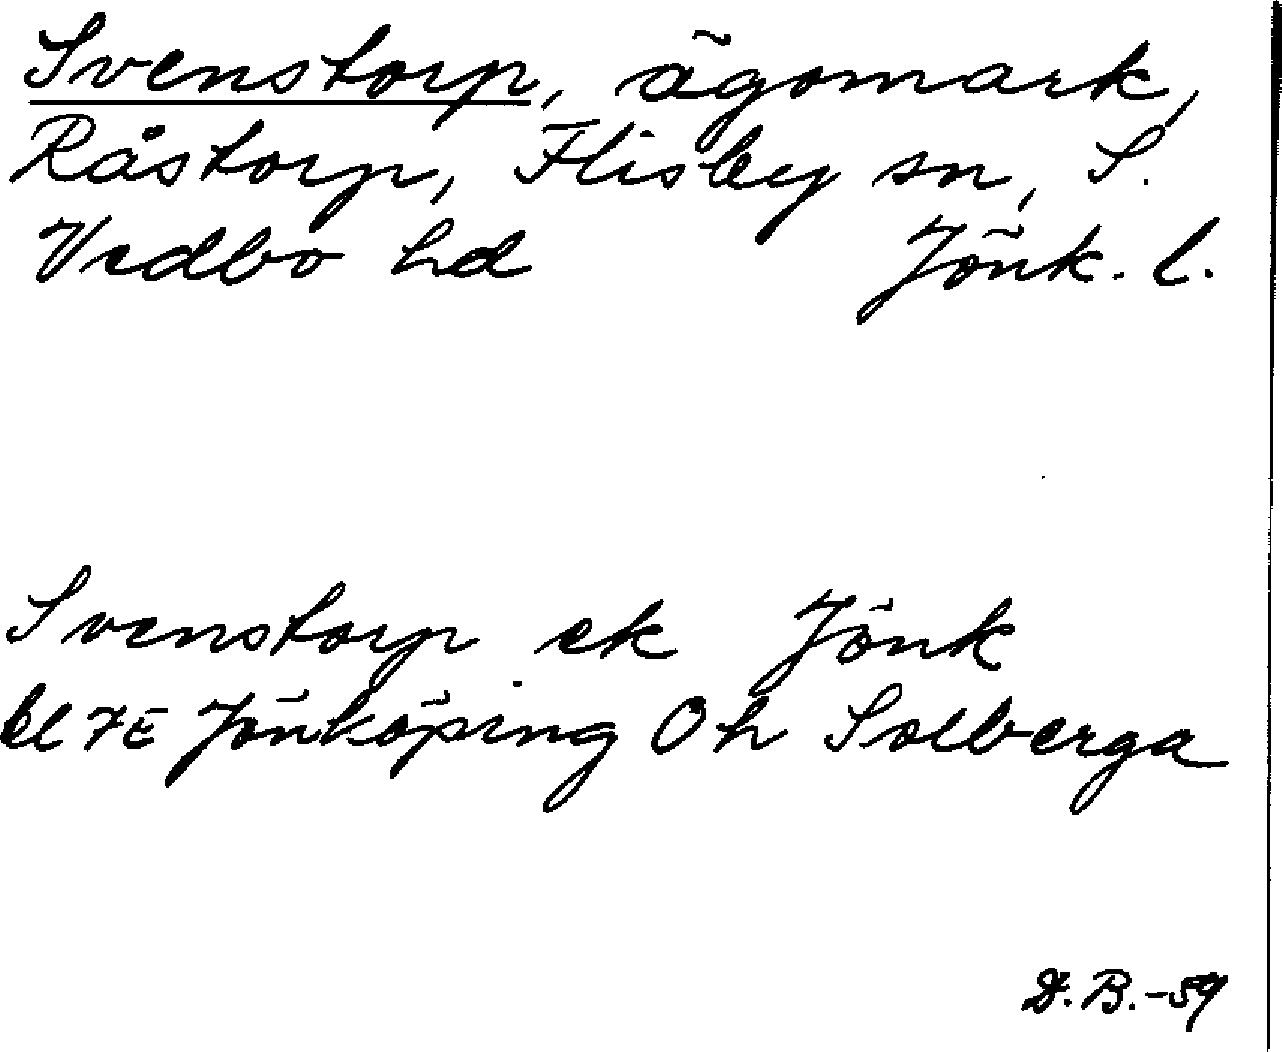 Svenstorp, ägomark,
Råstorp, Flisby sn, S.
Vedbo hd Jönk. l.
Svenstorp ek Jönk
bl 7E Jönköping Oh Solberga
D.B.-59